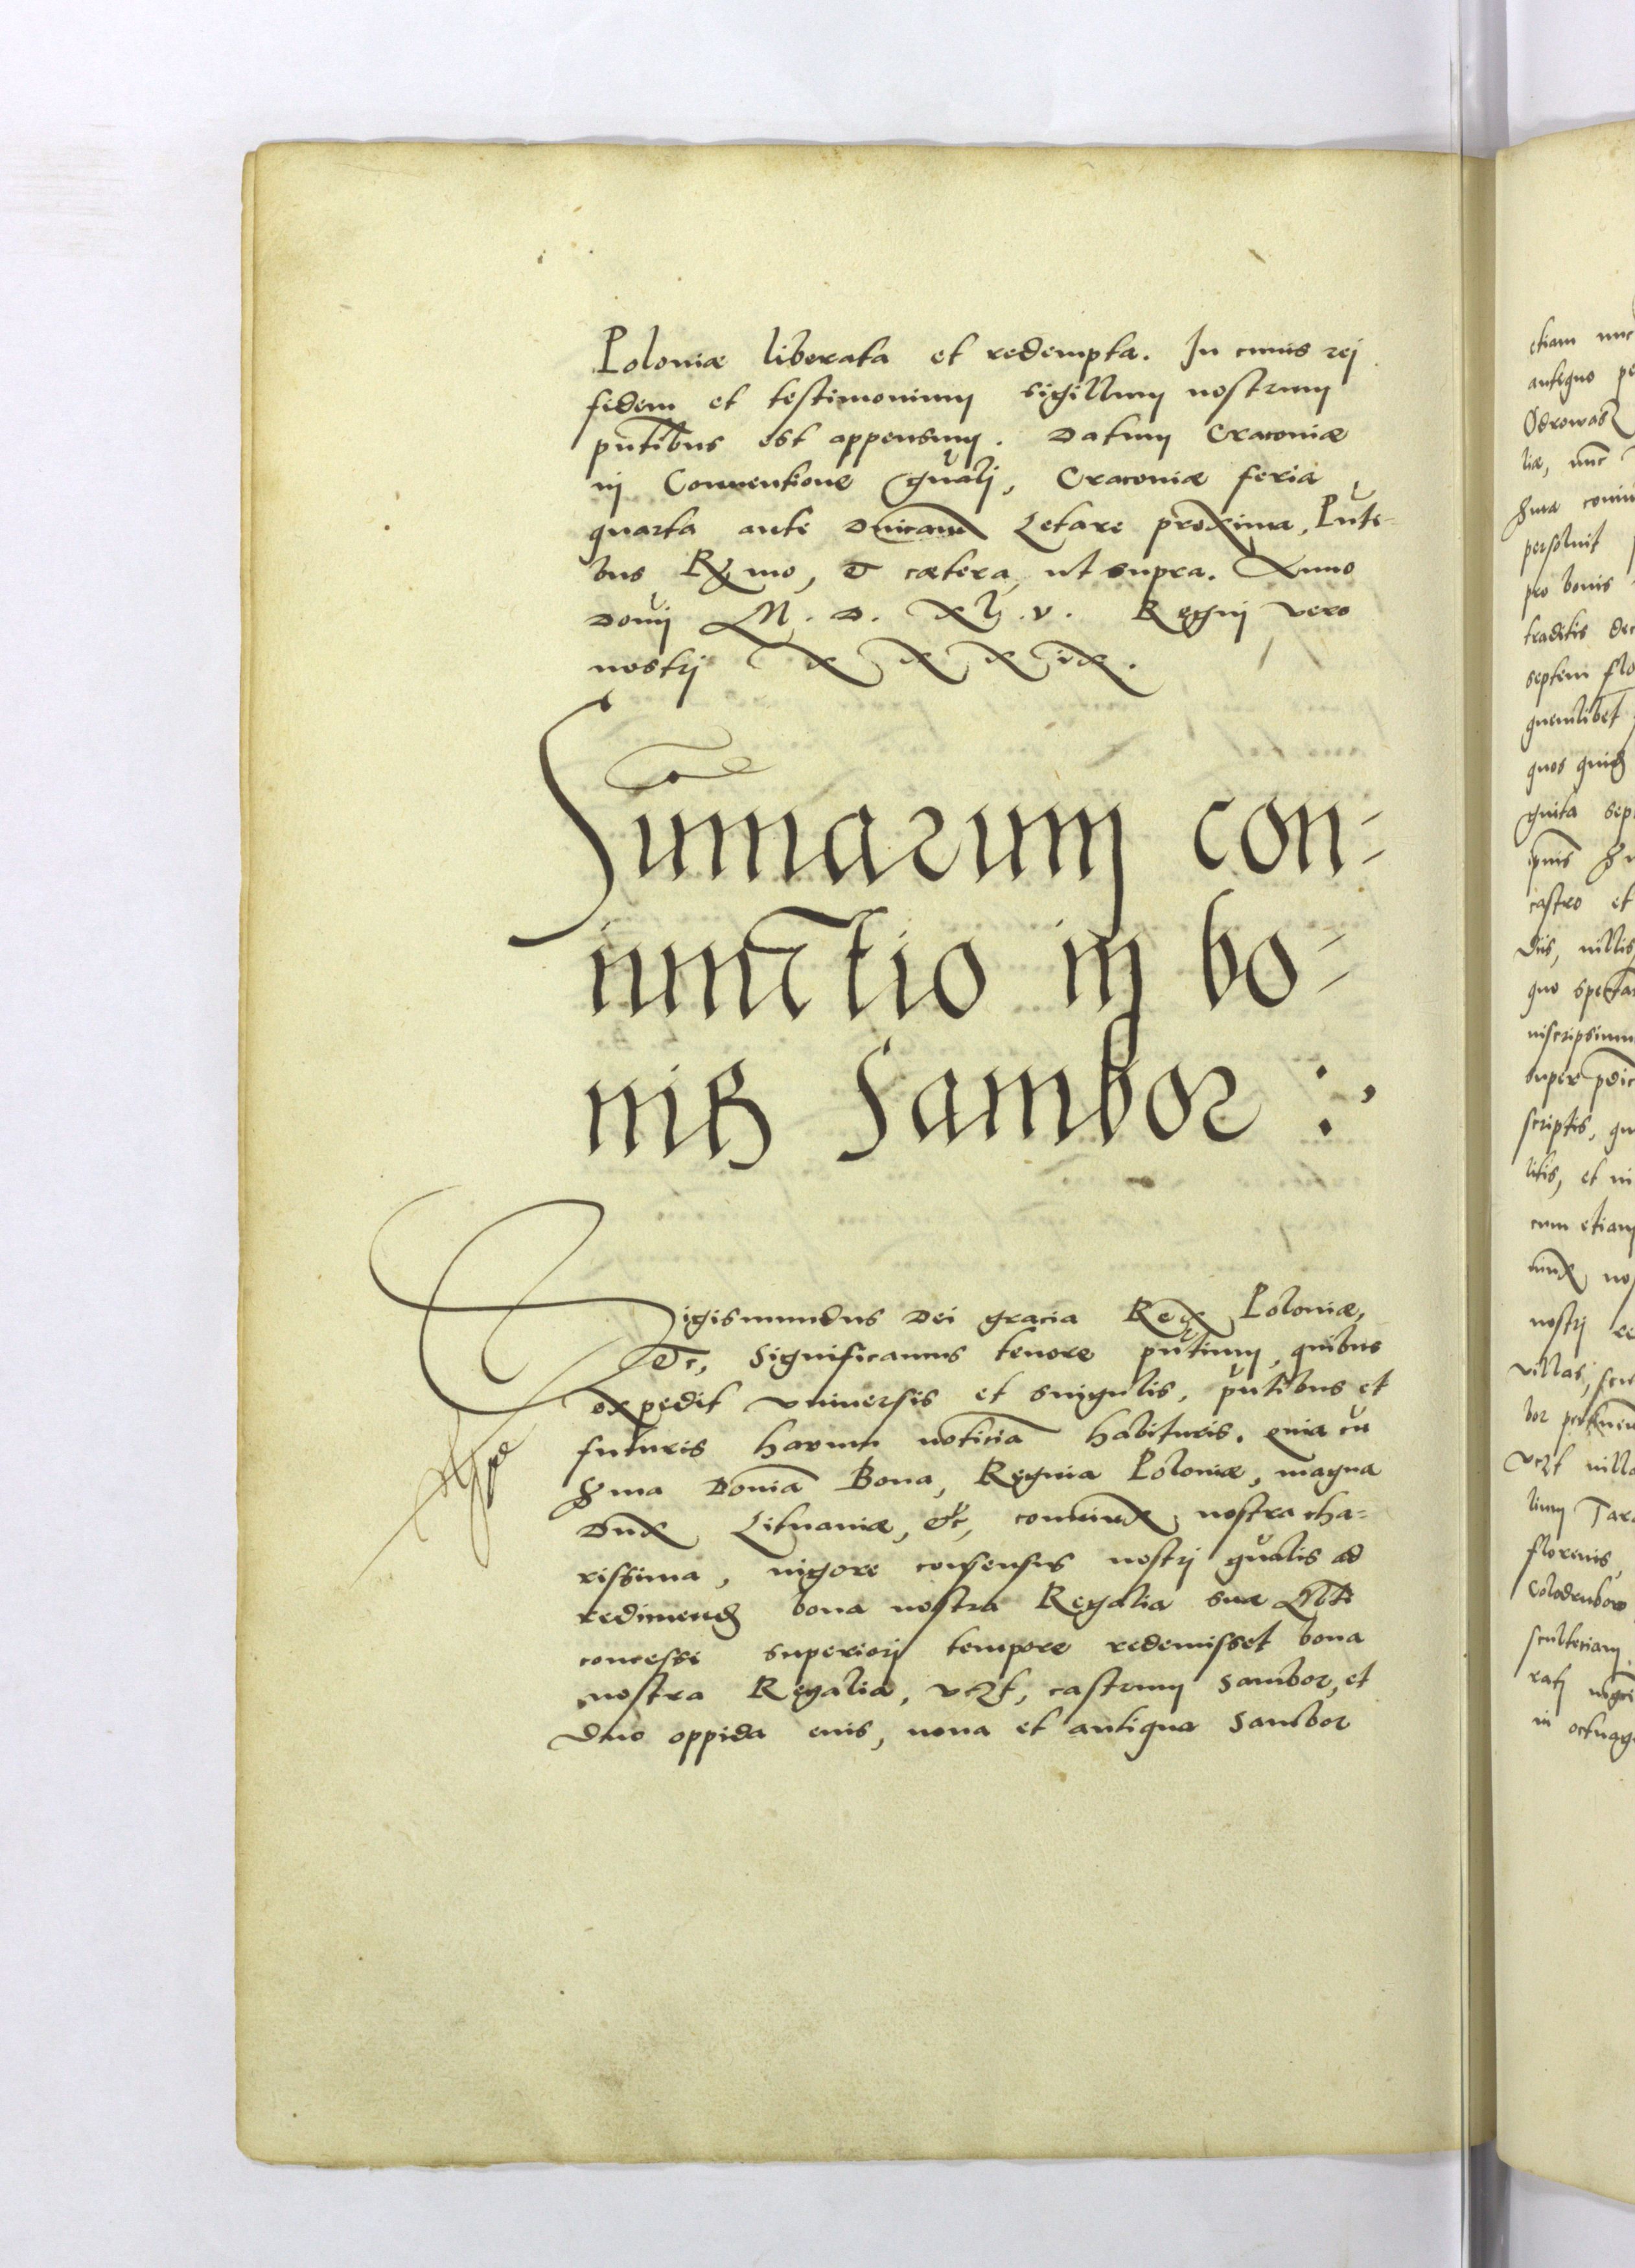 Poloniæ liberata et redempta. In cuius rej
fidem et testimonium sigillum nostrum
pntibus est appensum. Datum Cracoviæ
in Conventione gnalj, Cracoviæ feria
quarta ante Dnicam Letare proxima, Pnti-
bus Rmo, et cætera, ut supra. Anno
Domj M. D. XL. V. Regnj vero
nostrj XXXIX.
Summarum con-
iunctio in bo-
nis Sambor :
Sigismundus Dei gracia Rex Poloniæ,
Etc, Significamus tenore pntium, quibus
expedit universis et singulis, pntibus et
futuris harum noticiã habituris. quia cũ
Sma Domiã Bona, Regina Poloniæ, magna
Dux Lituaniæ, etc, coniunx nostra cha-
rissima, vigore consensus nostrj gnalis ad
redimend bona nostra Regalia suæ Mti
concessi superiorj tempore redemisset bona
nostra Regalia, vczt, castrum Sambor, et
duo oppida eius, nova et antiqua Sambor
etiam nnc
antiquo
Odrowasz
liæ, nnc
Sma
persoluit
pro bonis
traditis
septem flo
quemlibet
quos quid
castro et
super
scriptis,
litis, et in
cum etiam
nostrj
villas,
vczt villa
florenis,
scultetiam